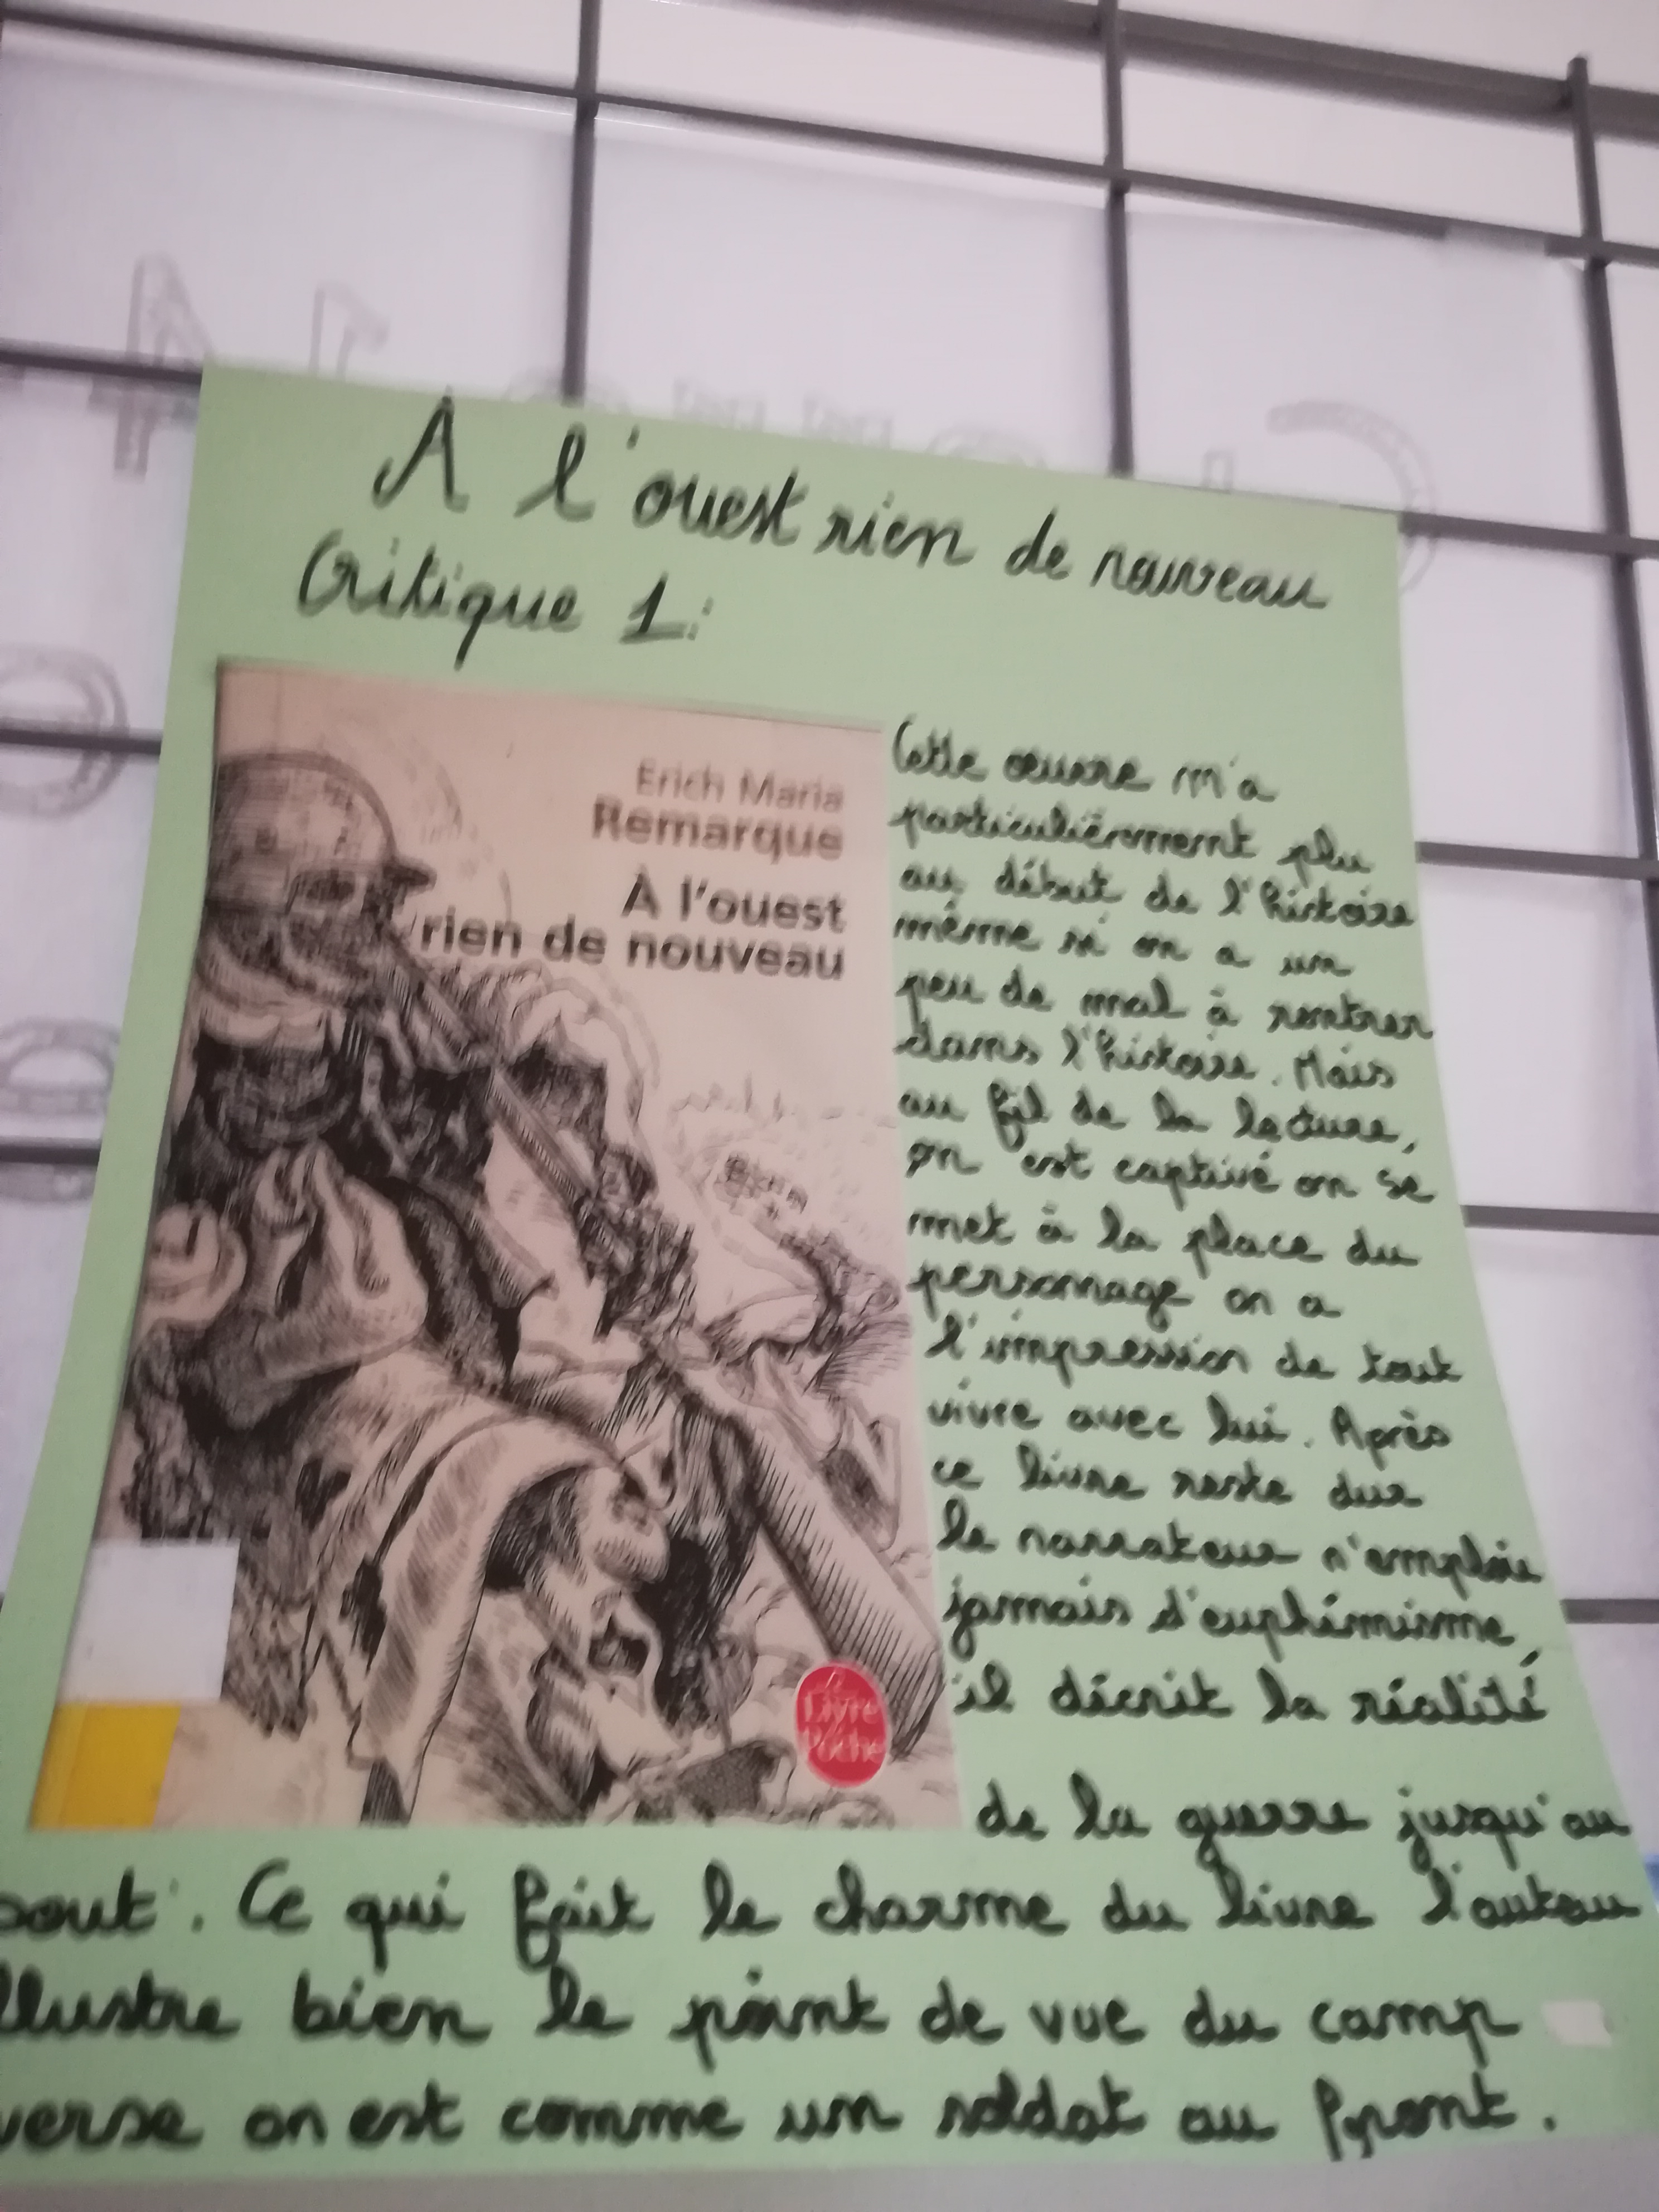 A l'ouest rien de nouveau
Critique 1:
Erich Maria
Remarque
À l'ouest
rien de nouveau
Le
Livre
de
Poche
Cette œuvre m'a
particulièrement plu
au début de l'histoire
même si on a un
peu de mal à rentrer
dans l'histoire. Mais
au fil de la lecture,
on est captivé on se
met à la place du
personnage on a
l'impression de tout
vivre avec lui. Après
ce livre reste dur
le narrateur n'emploie
jamais d'euphémisme,
il décrit la réalité
de la guerre jusqu'au
bout. Ce qui fait le charme du livre l'auteur
illustre bien le point de vue du camp
verse on est comme un soldat au front.